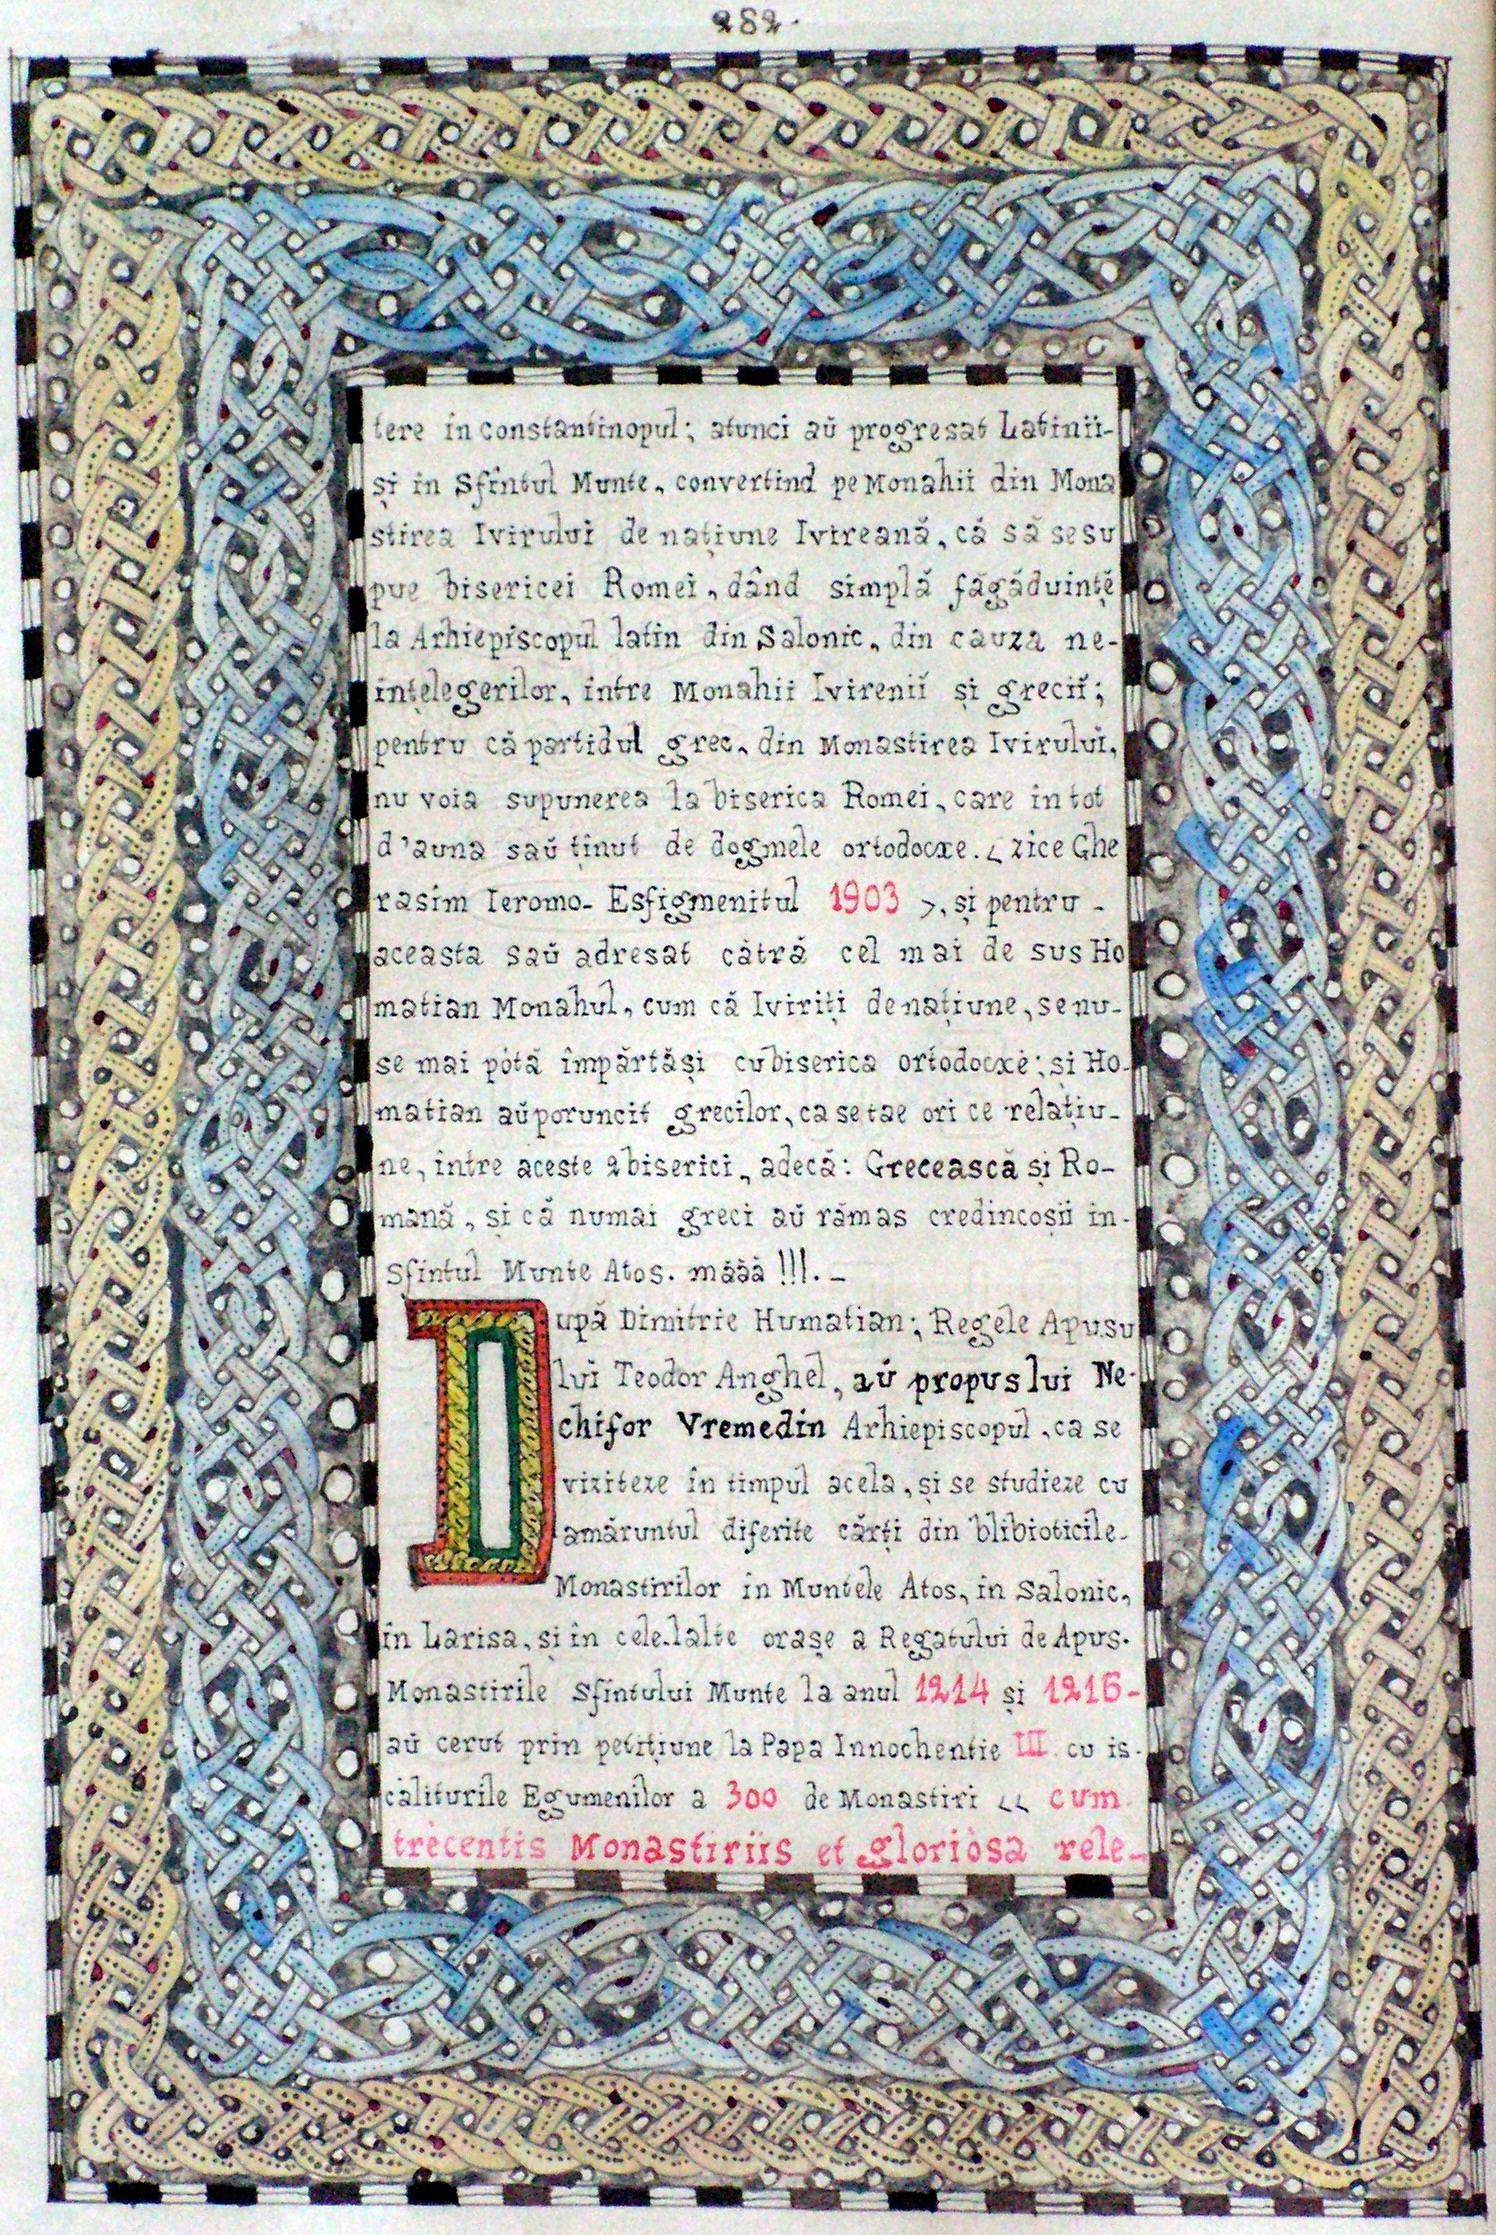 282.
tere in constantinopul; atunci aŭ progresat Latinii-
și in Sfîntul Munte, convertind pe Monahii din Mona
stirea Ivirului de națiune Ivireană, că să se su
pue bisericei Romei, dând simplă făgăduință
la Arhiepiscopul latin din Salonic, din cauza ne-
ințelegerilor, intre Monahii Ivirenii și grecii;
pentru că partidul grec, din Monastirea Ivirului,
nu voia supunerea la biserica Romei, care in tot
d'auna saŭ ținut de dogmele ortodocxe. < zice Ghe
rasim Ieromo- Esfigmenitul 1903 >, și pentru -
aceasta saŭ adresat cătră cel mai de sus Ho
matian Monahul, cum că Iviriți de națiune, se nu-
se mai pótă împărtăși cu biserica ortodocxė; și Ho-
matian aŭ poruncit grecilor, ca se tae ori ce relațiu-
ne, între aceste 2 biserici, adecă: Grecească și Ro-
mană, și că numai greci aŭ rămas credincoșii in-
Sfintul Munte Atos. măăă !!!. -
După Dimitrie Humatian; Regele Apusu
lui Teodor Anghel, aŭ propus lui Ne-
chifor Vremedin Arhiepiscopul, ca se
viziteze în timpul acela, și se studieze cu
amăruntul diferite cărți din blibioticile-
Monastirilor in Muntele Atos, in Salonic,
în Larisa, și în cele.lalte orașe a Regatului de Apus.
Monastirile Sfintului Munte la anul 1214 și 1216-
aŭ cerut prin petițiune la Papa Innochentie III cu is-
căliturile Egumenilor a 300 de Monastiri << cum
trècentis Monastiriis et gloriòsa rele-